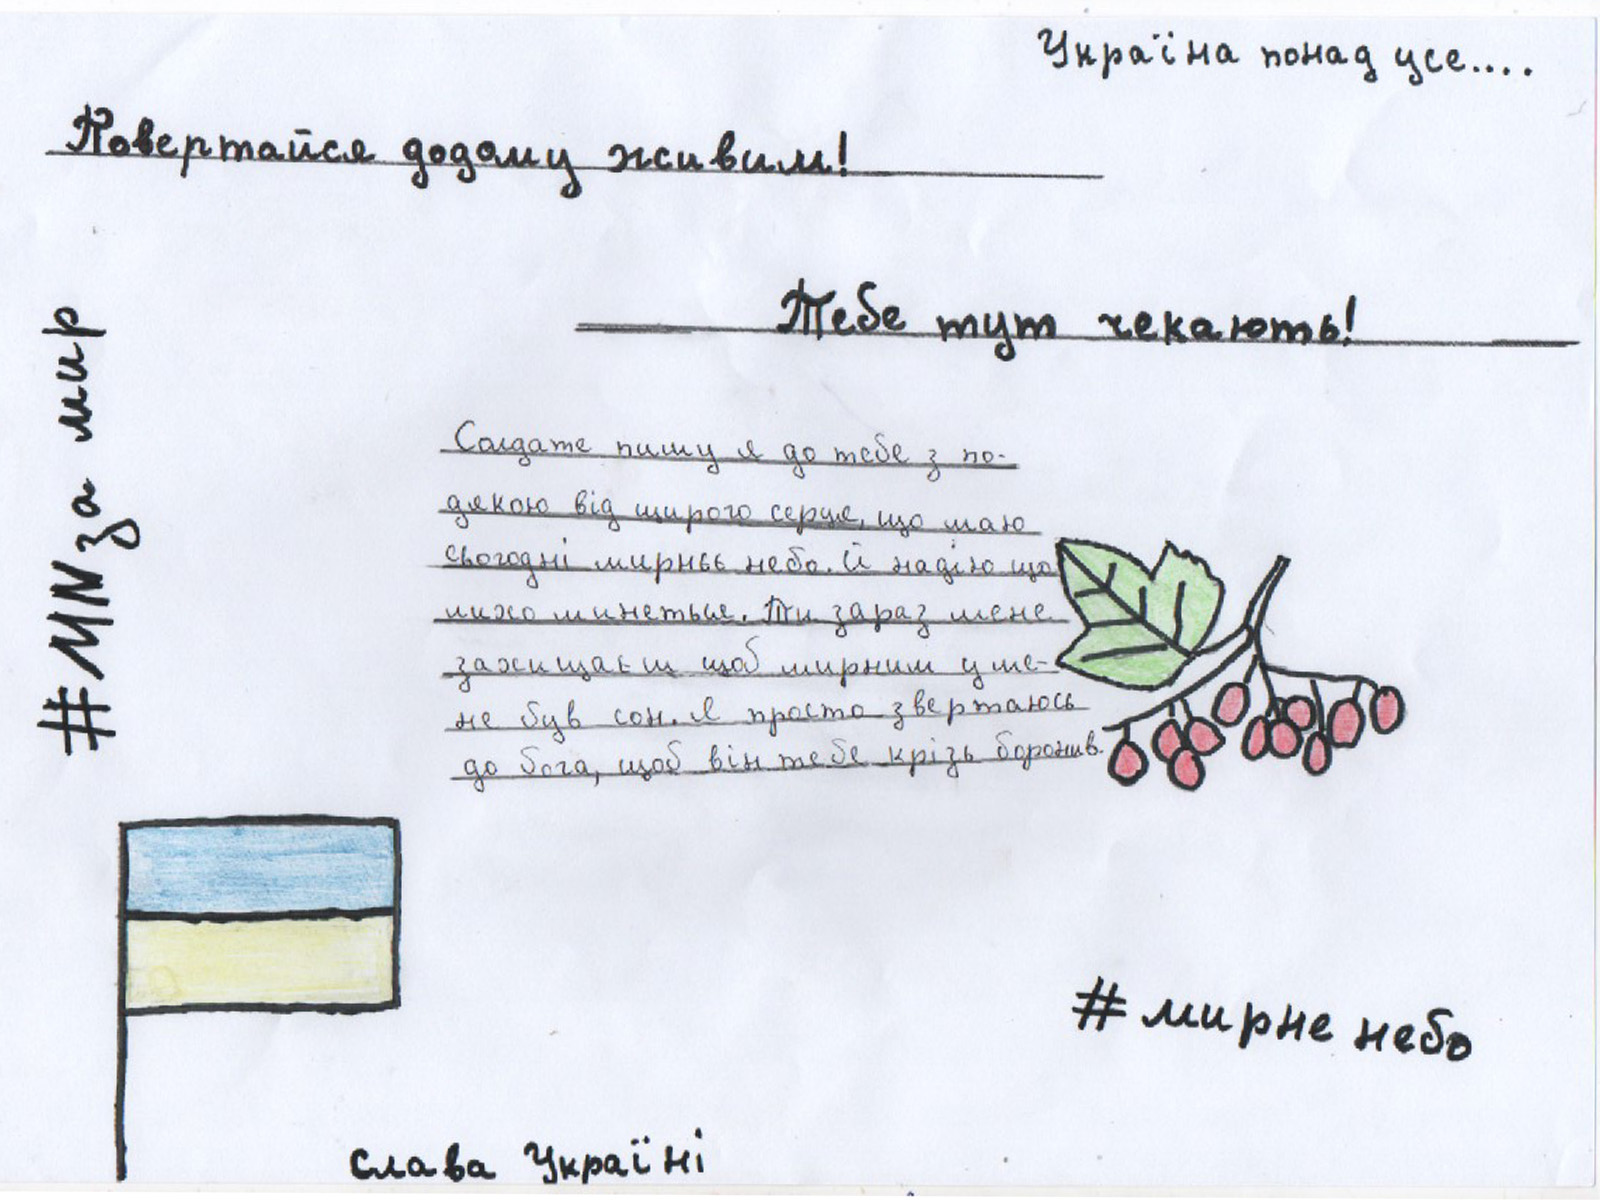 Україна понад усе....
Повертайся додому живим!
Тебе тут чекають!
#MNза мир
Солдате пишу я до тебе з по-
дякою від щирого серця, що маю
сьогодні мирнеє небо. Й надію що
лихо минеться. Ти зараз мене
захищаєш щоб мирним у ме-
не був сон. Я просто звертаюсь
до бога, щоб він тебе крізь боронив.
#мирне небо
слава Україні